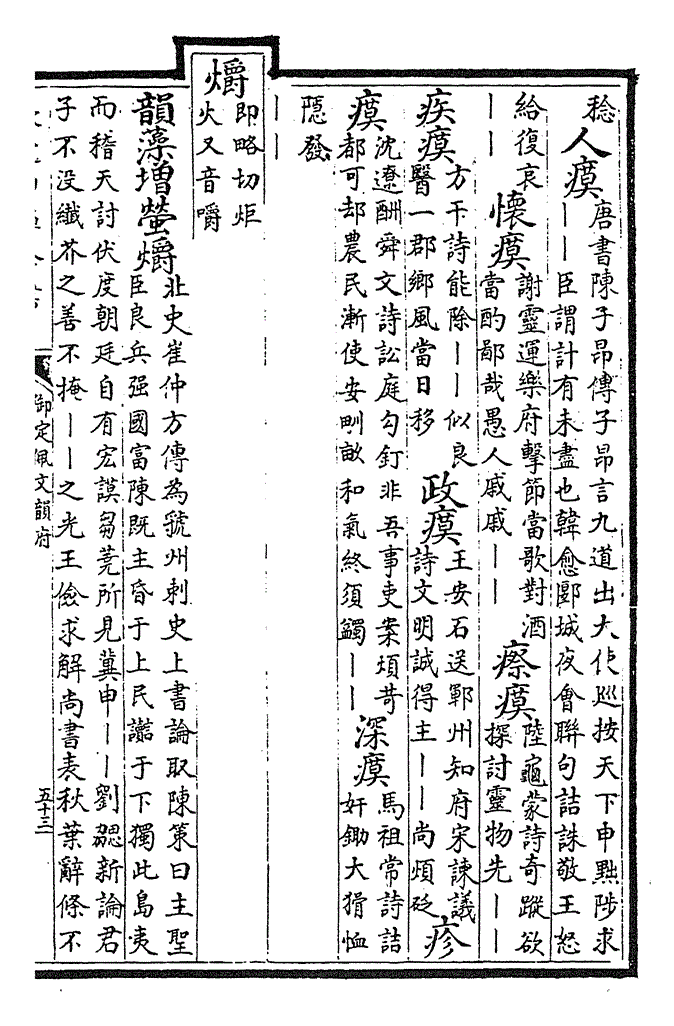 稔
人瘼
唐書陳子昂傳子昂言九道出大使廵按天下申黜陟求
丨丨臣謂計有未盡也韓愈郾城夜會聯句詰誅敬王怒
給復哀
丨丨
懷瘼
謝靈運樂府擊節當歌對酒
當酌鄙哉愚人戚戚丨丨
瘵瘼
陸龜蒙詩奇蹤欲
探討靈物先丨丨
疾瘼
方干詩能除丨丨似良
醫一郡鄉風當日移
政瘼
王安石送鄆州知府宋諫議
詩文明誠得主丨丨尚煩砭
疹
瘼
沈遼酬舜文詩訟庭勾釘非吾事吏案煩苛
都可却農民漸使安甽畝和氣終須蠲丨丨
深瘼
馬祖常詩詰
奸鋤大猾恤
隱發
丨丨
爝
即略切炬
火又音嚼
韻藻增螢爝
北史崔仲方傳為虢州刺史上書論取陳策曰主聖
臣良兵强國富陳既主昏于上民讟于下獨此島夷
而稽天討伏度朝廷自有宏謨芻蕘所見冀申丨丨劉勰新論君
子不没纖芥之善不掩丨丨之光王儉求解尚書表秋葉辭條不
御定佩文韻府
五十三